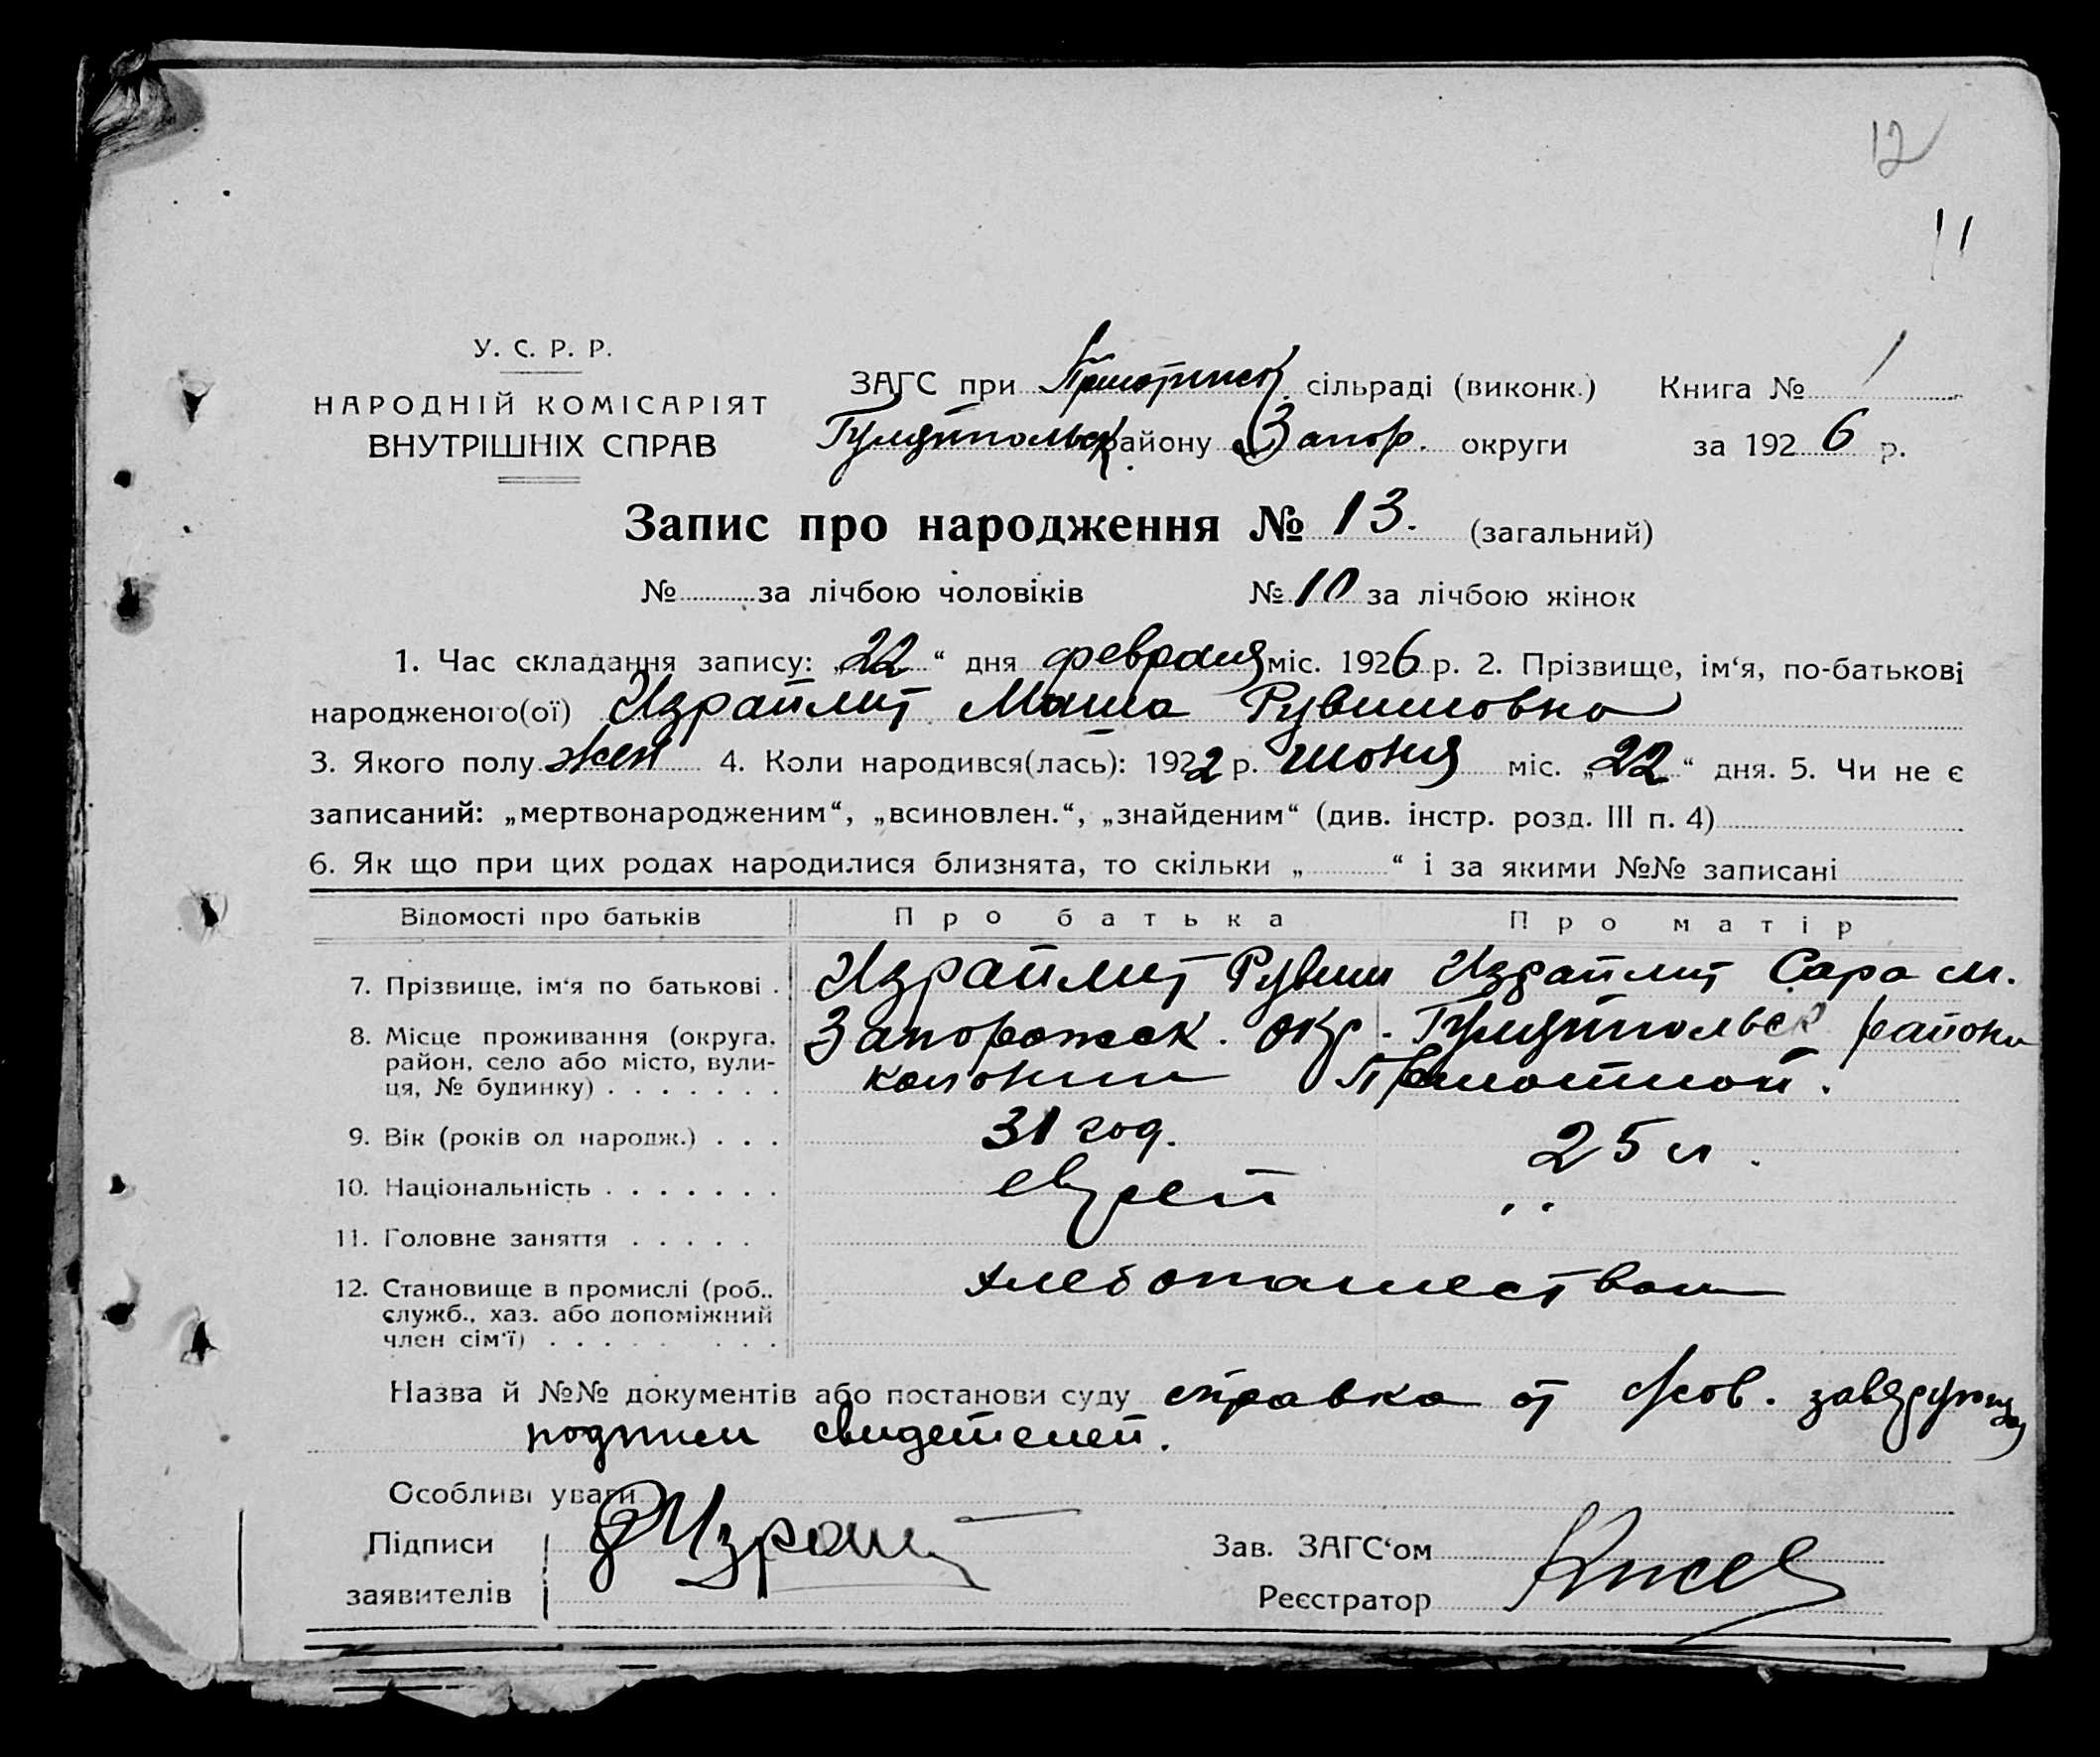 12
11
У. С. Р. Р.
НАРОДНІЙ КОМІСАРІЯТ
ВНУТРІШНІХ СПРАВ
ЗАГС при сільраді (виконк.) Книга № 1
Гуляйпольск району Запор. округи за 1926 р.
Запис про народження № 13. (загальний)
№ за лічбою чоловіків № 10 за лічбою жінок
1. Час складання запису: „22“ дня февраля міс. 1926 р. 2. Прізвище, ім‘я, по-батькові
народженого(ої) Израйлит Маша Рувимовна
3. Якого полу жен 4. Коли народився(лась): 1922 р. июня міс. „22“ дня. 5. Чи не є
записаний: „мертвонародженим“, „всиновлен.“, „знайденим“ (див. інстр. розд. III п. 4)
6. Як що при цих родах народилися близнята, то скільки „ “ і за якими №№ записані
Відомості про батьків Про батька Про матір
7. Прізвище, ім‘я по батькові . Израйлит Рувим Израйлит Сара М.
8. Місце проживання (округа, Запорожск. окр. Гуляйпольск района
район, село або місто, вули-
ця, № будинку) . . . . . . . колонии
9. Вік (років од народж.) . . . 31 год. 25 л.
10. Національність . . . . . . . еврей „
11. Головне заняття . . . . .
12. Становище в промислі (роб., хлебопашеством
служб., хаз. або допоміжний
член сім‘ї) . . . . . . . .
Назва й №№ документів або постанови суду справка от
подписи свидетелей.
Особливі уваги
Підписи Зав. ЗАГС‘ом
заявителів Реєстратор